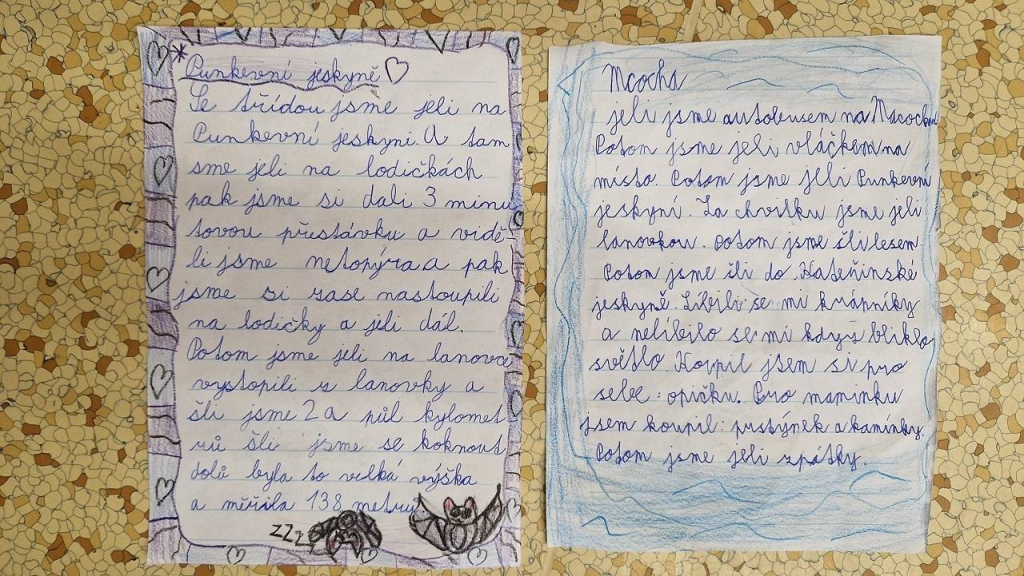 Punkevní jeskyně
Se třídou jsme jeli na
Punkevní jeskyni. A tam
sme jeli na lodičkách
pak jsme si dali 3 minu
tovou přestávku a vidě-
li jsme netopýra a pak
jsme si zase nastoupili
na lodičky a jeli dál.
Potom jsme jeli na lanovce
vystopili z lanovky a
šli jsme 2 a půl kylomet
rů šli jsme se kouknout
dolů byla to velká výška
a měřila 138 metru
zzzz
Macocha
jeli jsme autobusem na Macochu
Potom jsme jeli vláčkem na
místo. Potom jsme jeli Punkevní
jeskyní. Za chvilku jsme jeli
lanovkou. potom jsme šli lesem.
Potom jsme šli do Kateřinské
jeskyně. Líbili se mi krápníky
a nelíbilo se mi když bliklo
světlo. Koupil jsem si pro
sebe: opičku. Pro maminku
jsem koupil: prstýnek a kamínky.
Potom jsme jeli zpátky.